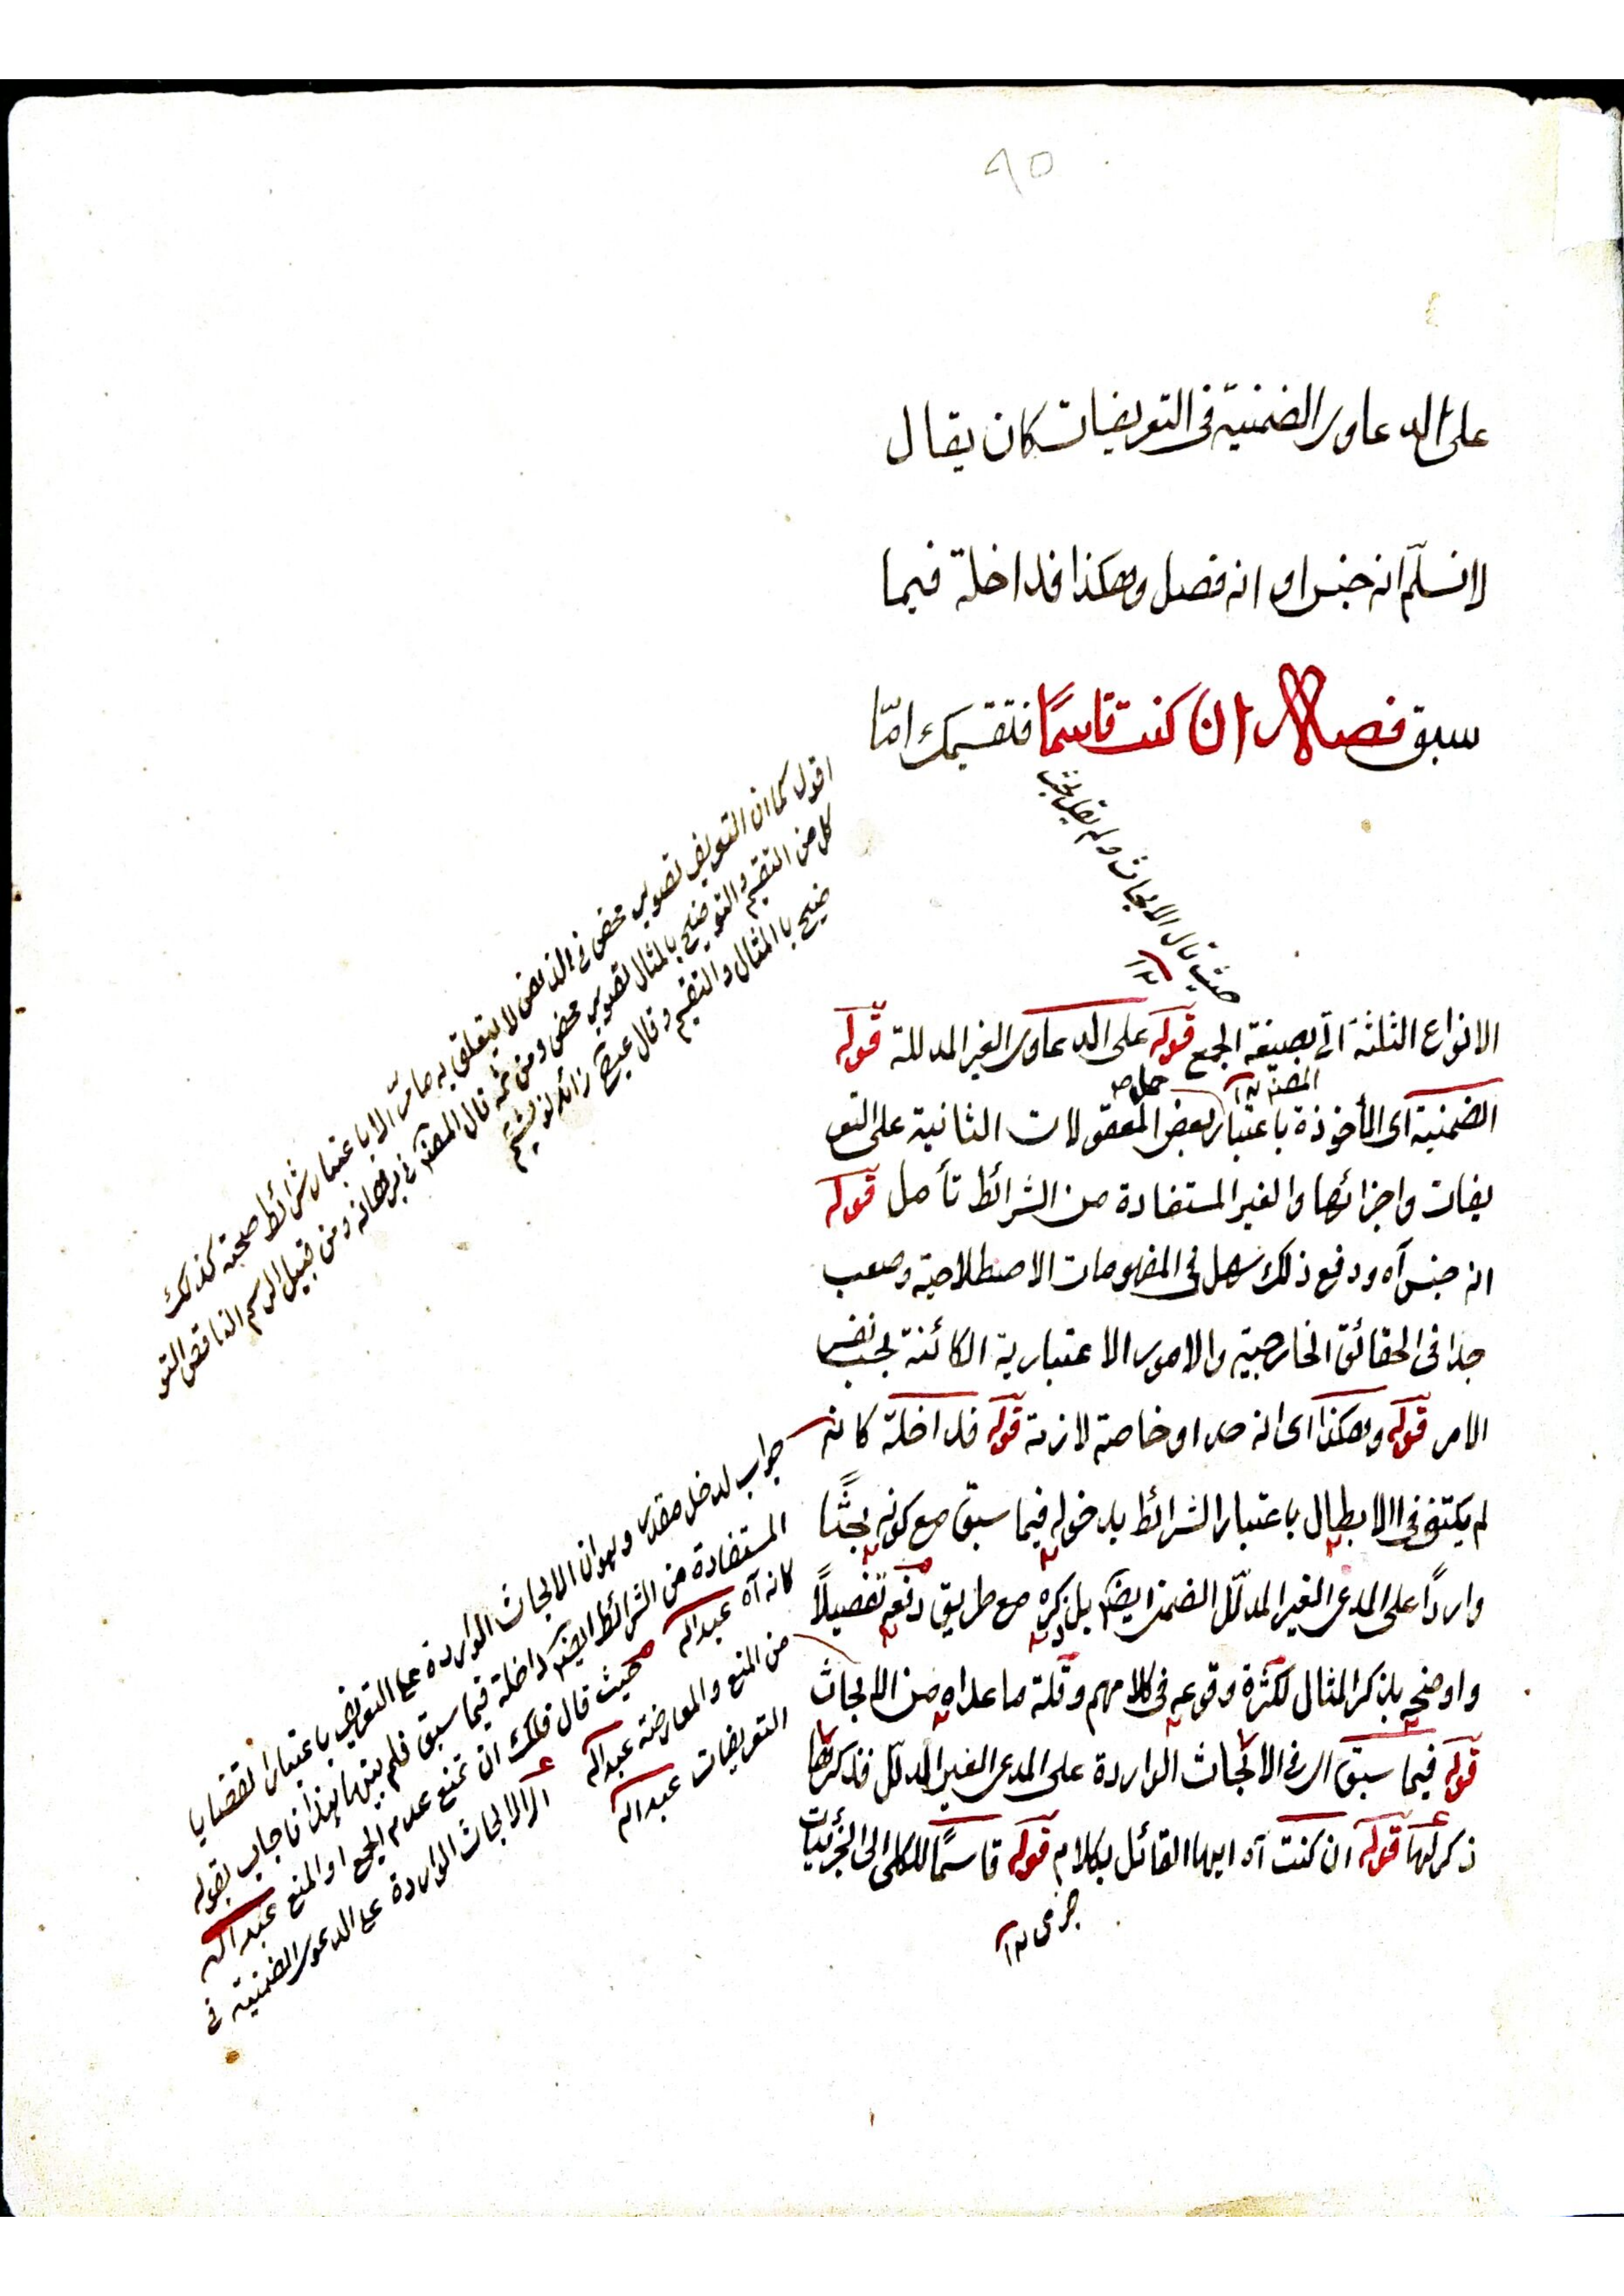 ٩٥
على الدعاوى الضمنية فى التعريفات كان يقال
لا نسلّم انه جنس او انه فصل وهكذا فداخلة فيما
سبق فصل ان كنت قاسمًا فتقسيمك امّا
حيث قال الابحاث ولم يقل
١٢
الانواع الثلثة اتى بصيغة الجمع قوله على الدعاوى الغير المدللة قوله
المصنف ١٢
حمل
الضمنية اى المأخوذة باعتبار بعض المعقولات الثانية على التعر
يفات واجزائها والغير المستفادة من الشرائط تأمل قوله
انه جنس آه ودفع ذلك سهل فى المفهومات الاصطلاحية وصعب
جدا فى الحقائق الخارجية والامور الاعتبارية الكائنة بحسب نفس
الامر قوله وهكذا اى انه حد او خاصة لازمة قوله فداخلة كانه
لم يكتف فى الابطال باعتبار الشرائط بدخوله فيما سبق مع كونه بحثًا
واردًا على المدعى الغير المدلّل الضمنى ايضا بل ذكره مع طريق دفعه تفصيلًا
واوضحه بذكر المثال لكثرة وقوعه فى كلامهم وقلة ما عداه من الابحاث
قوله فيما سبق اى فى الابحاث الواردة على المدعى الغير المدلّل فذكرها
ذكر لها قوله ان كنت آه ايها القائل بكلام قوله قاسمًا للكلى الى الجزئيات
جرى ١٢
اقول كما ان التعريف تصوير محض فى الذهن لا يتعلق به مامرّ الا باعتبار شرائط صحته كذلك
كل من التقسيم والتوضيح بالمثال تصوير محض ومن ثمه قال المصنف فى برهانه ومن قبيل الرسم الناقص التو
ضيح بالمثال والتقسيم وقال
جواب لدخل مقدر وهو ان الابحاث الواردة على التعريف باعتبار القضايا
المستفادة من الشرائط ايضا داخلة فيما سبق فلم بينها بهذا فاجاب بقوله
كانه آه عبد الله
حيث قال فلك ان تمنع عدم الجمع او المنع عبد الله
من المنع والمعارضة عبد الله
اى الابحاث الواردة على الدعوى الضمنية فى
التعريفات عبد الله